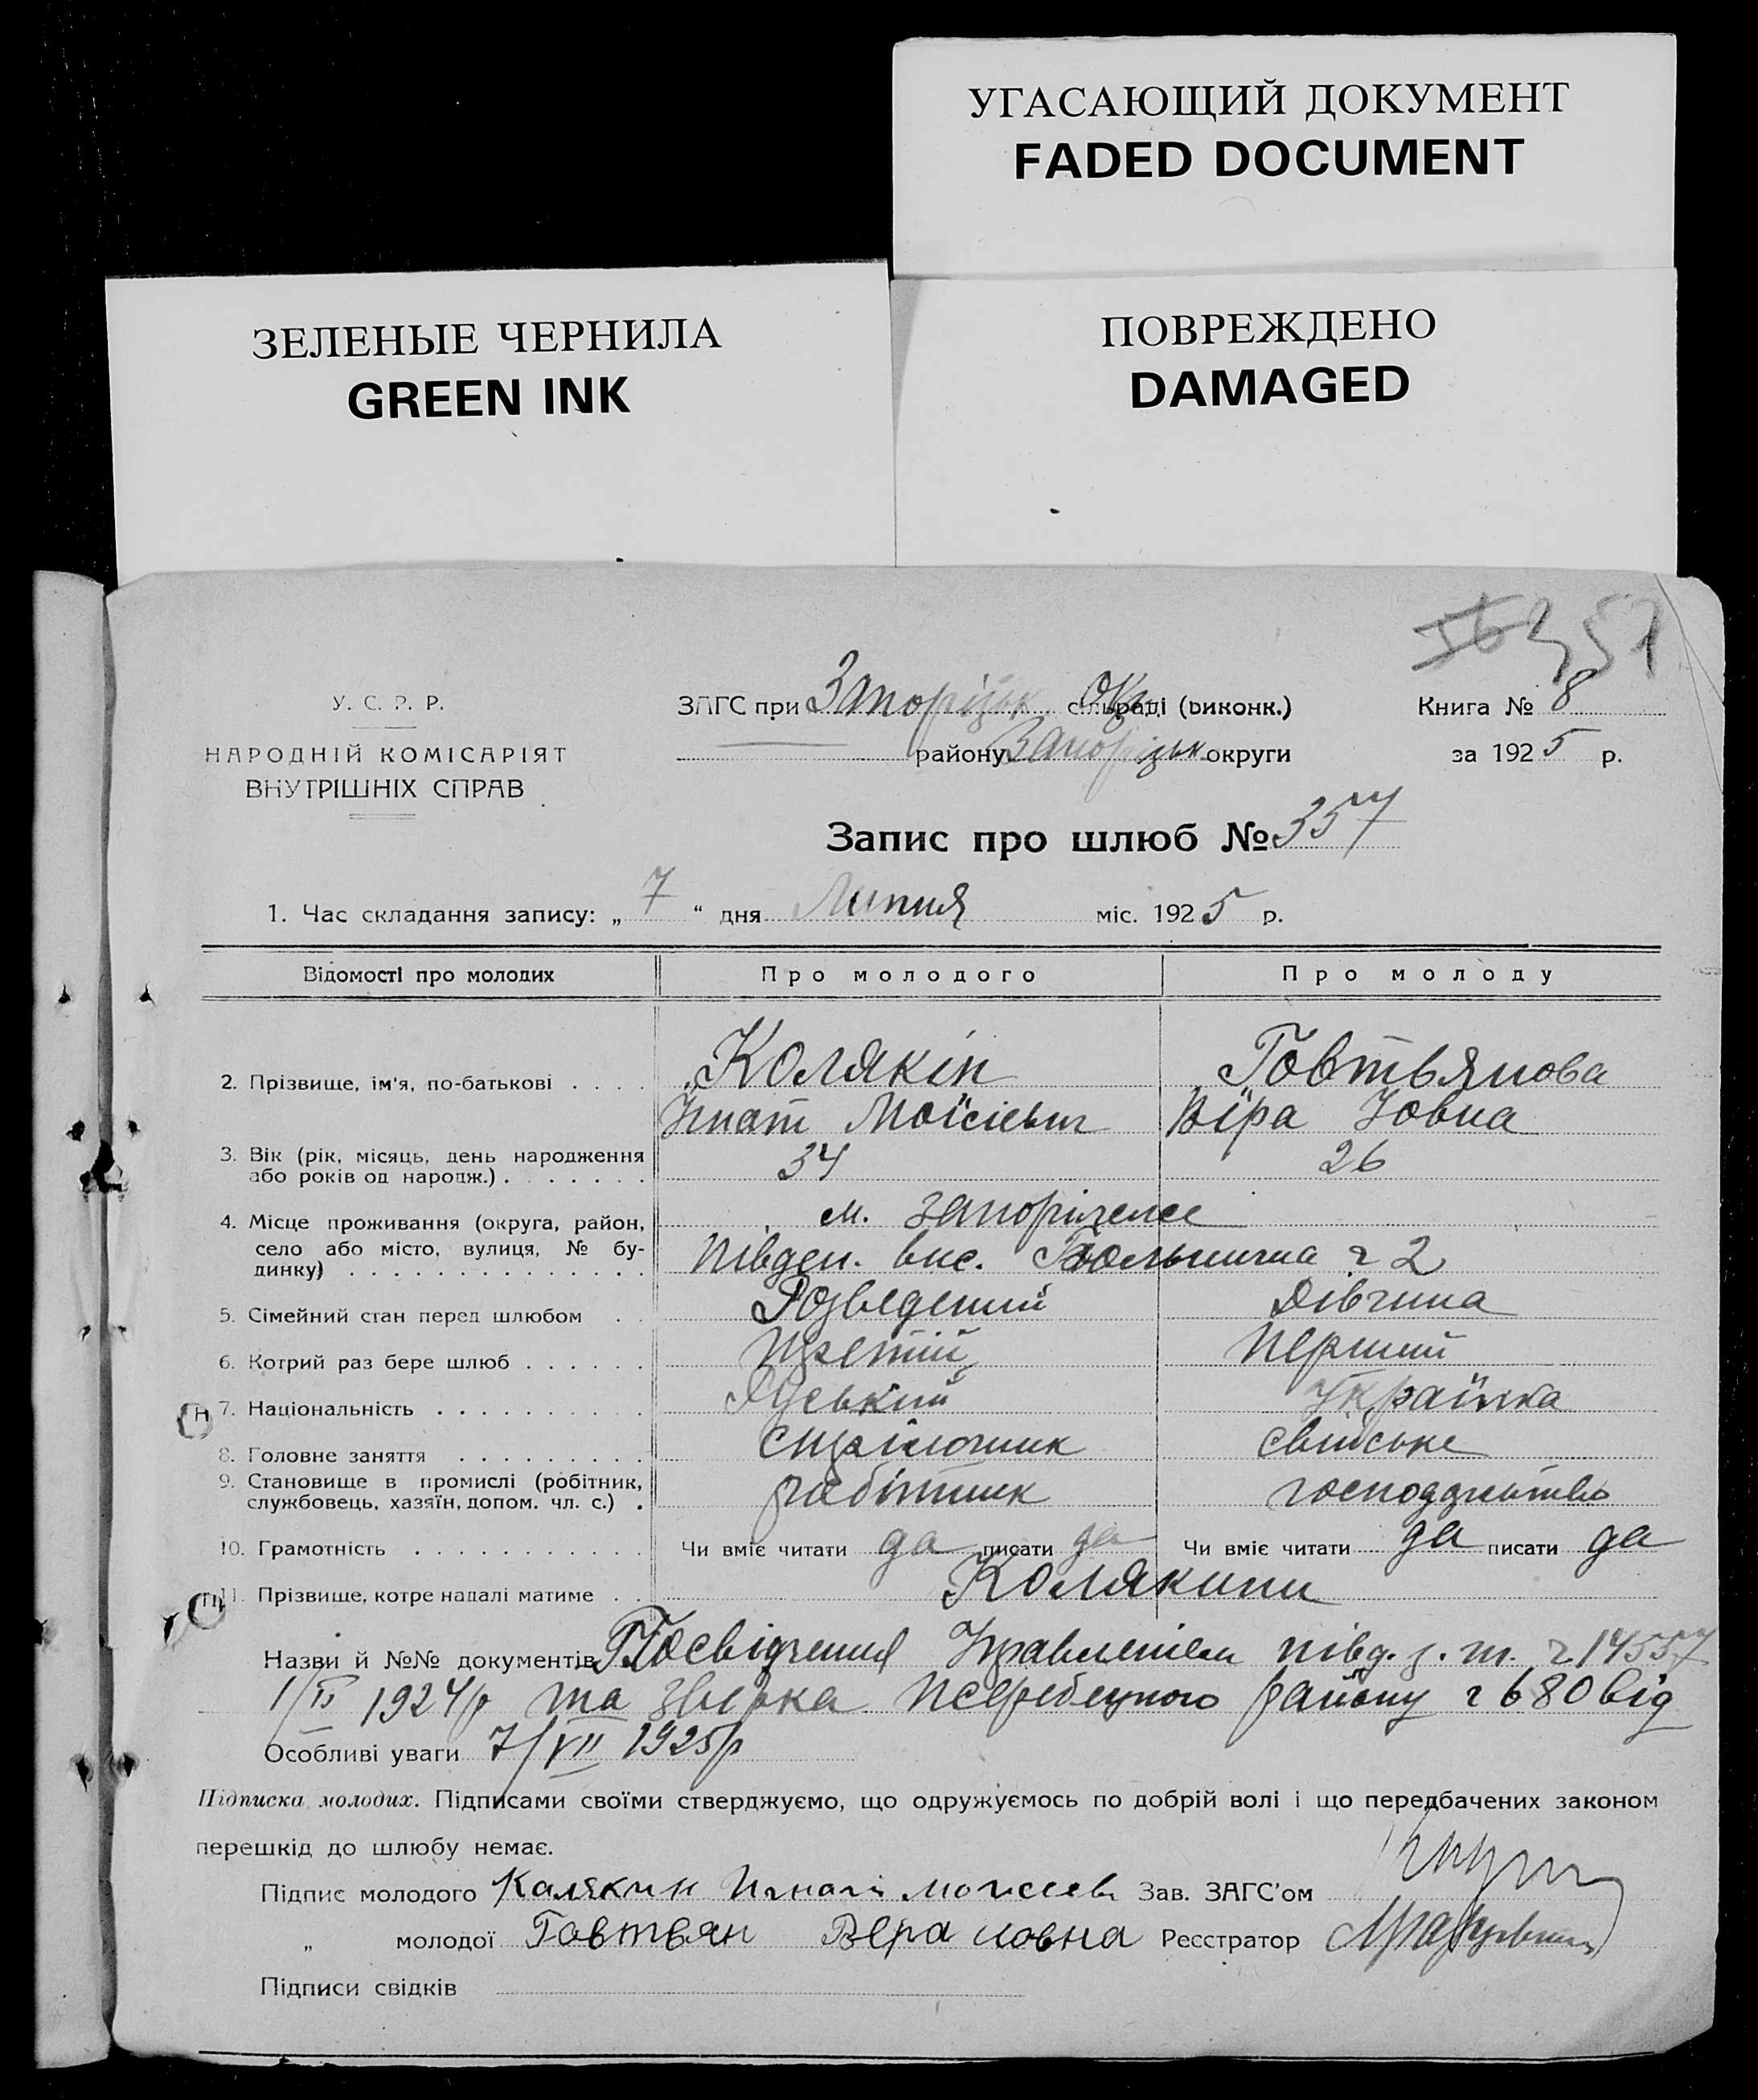 УГАСАЮЩИЙ ДОКУМЕНТ
FADED DOCUMENT
ЗЕЛЕНЫЕ ЧЕРНИЛА
GREEN INK
ПОВРЕЖДЕНО
DAMAGED
351
У. С. Р. Р.
НАРОДНІЙ КОМІСАРІЯТ
ВНУТРІШНІХ СПРАВ
ЗАГС при Запоріцьк Окр сільраді (виконк.)
району Запоріцьк округи
Книга № 8
за 1925 р.
Запис про шлюб № 357
1. Час складання запису: „ 7 “ дня Липня міс. 1925 р.
Відомості про молодих Про молодого Про молоду
2. Прізвище, ім'я, по-батькові . . . . Колякін Говтвянова
Ігнат Моїсієвич Віра Іовна
3. Вік (рік, місяць, день народження
або років од народж.) . . . . . . . 34 26
4. Місце проживання (округа, район,
село або місто, вулиця, № бу-
динку) . . . . . . . . . . . . . .
м. Запоріжжє
Півден. вис. Больнична ч 2
5. Сімейний стан перед шлюбом . . Розведений Дівчина
6. Котрий раз бере шлюб . . . . . . Третій Перший
Н 7. Національність . . . . . . . . . Руський Українка
8. Головне заняття . . . . . . . . . стрілочник свійське
9. Становище в промислі (робітник,
службовець, хазяїн, допом. чл. с.) . робітник господарство
10. Грамотність . . . . . . . . . . . Чи вміє читати да писати да Чи вміє читати да писати да
11. Прізвище, котре надалі матиме . . Колякини
Назви й №№ документів Посвідчення Управлінєм півд. з. т. ч 14557
1924р та Пєрєбецького району ч 680 від
Особливі уваги 7/VII 1925р
Підписка молодих. Підписами своїми стверджуємо, що одружуємось по добрій волі і що передбачених законом
перешкід до шлюбу немає.
Підпис молодого Калякин Игнатй Моисеев Зав. ЗАГС'ом
„ молодої Говтвян Вера иовна Реєстратор
Підписи свідків